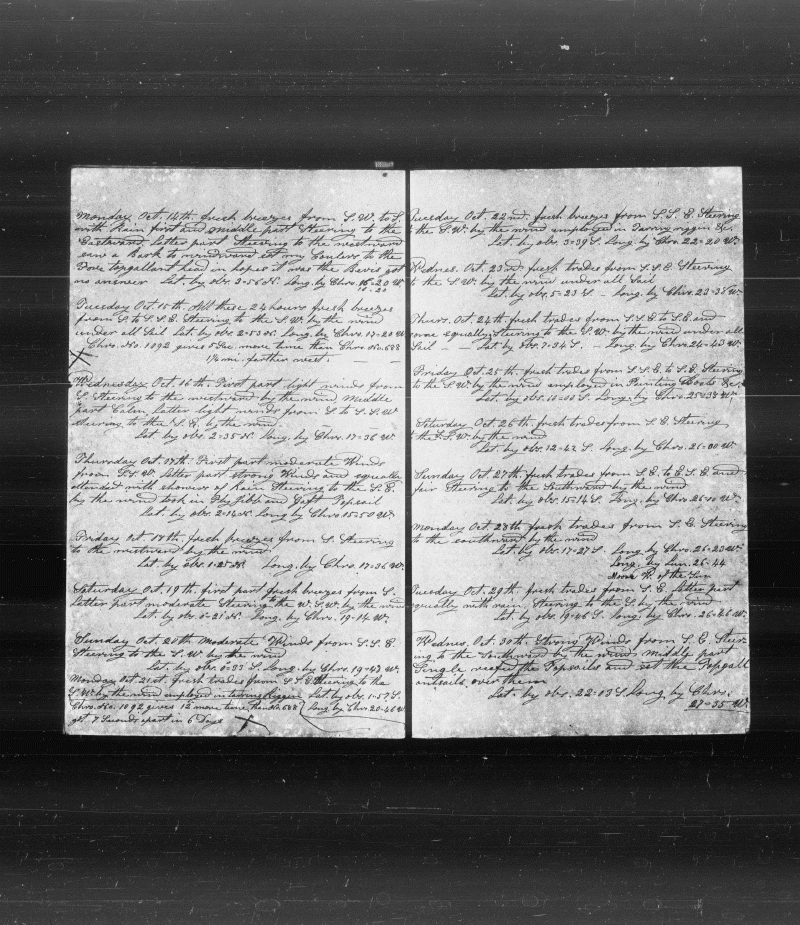 Monday Oct. 14th. fresh breezes from S. W. to S.
with Rain first and middle part Steering to the
Eastward Latter part Steering to the westward
saw a Bark to windward set my Coulers to the
Fore topgallant head in hopes it was the got
no answer Lat. by obs. 3=56 N. Long. by Chro. 18=20 W.
Tuesday Oct. 15th. All these 24 hours fresh breezes
from S. to S.S.E. Steering to the S.W. by the wind
under all Sail Lat. by obs. 2=53 N. Long. by Chro. 17=20 W
Chro. No. 1092 gives 5 Sec. more time than Chro. No. 688
1¼ mi. farther west.
Wednesday Oct. 16th First part light winds from
S. Steering to the westward by the wind, Middle
part Calm, Latter light winds from S. to S.S.W.
Steering to the S.E. by the wind
Lat. by obs. 2=35 N. Long. by Chro. 17=36 W.
Thursday Oct. 17th. First part moderate Winds
from Latter part strong Winds and squalls
attended with showers of Rain Steering to the S.E.
by the wind took in Fly Jibb and Gaft Topsail
Lat. by obs 2=14 N. long by Chro. 15=50 W.
Friday Oct 18th. fresh breezes from S. Steering
to the westward by the wind
Lat. by obs. 1=25 N. Long. by Chro. 17=36 W.
Saturday Oct. 19th. first part fresh breezes from S.
Latter part moderate Steering the W.S.W. by the wind
Lat. by obs. 0=21 N. Long. by Chro. 19=14 W.
Sunday Oct. 20th Moderate Winds from S.S.E.
Steering to the S.W. by the wind
Lat. by obs. 0=33 S. Long. by Chro. 19=43 W.
Monday Oct. 21st. fresh trades from S.S.E. Steering to the
S.W. by the wind employed in Riggin Lat. by obs. 1=57 S.
Chro. No. 1092 gives 12 more time than No. 688 Long. by Chro 20=46 W
got 7 Seconds apart in 6 Days
Tuesday Oct. 22nd. fresh breezes from S.S.E. Steering
the S.W. by the wind employed in Tarring riggin &c.
Lat. by obs. 3=39 S. Long. by Chro. 22=20 W.
Wednes. Oct. 23rd. fresh trades from S.S.E. Steering
to the S.W. by the wind under all Sail
Lat. by obs. 5=23 S. Long. by Chro. 23=38 W.
Thurs. Oct. 24th fresh trades from S.S.E. to S.E. and
some squalls Steering to the S.W. by the wind under all
Sail Lat. by obs. 7=34 S. Long. by Chro. 24=43 W.
Friday Oct. 25th fresh trades from S.S.E. to S.E. Steering
to the S.W. by the wind employed in Painting Boats &c.
Lat. by obs. 10=00 S. Long. by Chro. 25=38 W.
Saturday Oct 26th fresh trades from S.E. Steering
the S.S.W. by the wind
Lat. by obs. 12=42 S. Long. by Chro. 26=00 W.
Sunday Oct. 27th fresh trades from S.E. to E.S.E. and
fair Steering to the Southward by the wind
Lat. by obs. 15=14 S. Long. by Chro. 26=10 W.
Monday Oct. 28th fresh trades from S.E. Steering
to the southward by the wind
Lat. by obs. 17=27 S. Long. by Chro. 26=23 W.
Long. by Lun. 26=44
Moon W. of the Sun
Tuesday Oct. 29th. fresh trades from S.E. Latter part
squally with rain, Steering to the S. by the wind
Lat. by obs. 19=46 S. Long. by Chro. 26=26 W.
Wednes. Oct. 30th. Strong Winds from S.E. Steer-
ing to the Southward by the wind, middle part
Single reefed the Topsails and set the Topgall
antsails over them
Lat. by obs. 22=03 S Long by Chro.
27=35 W.